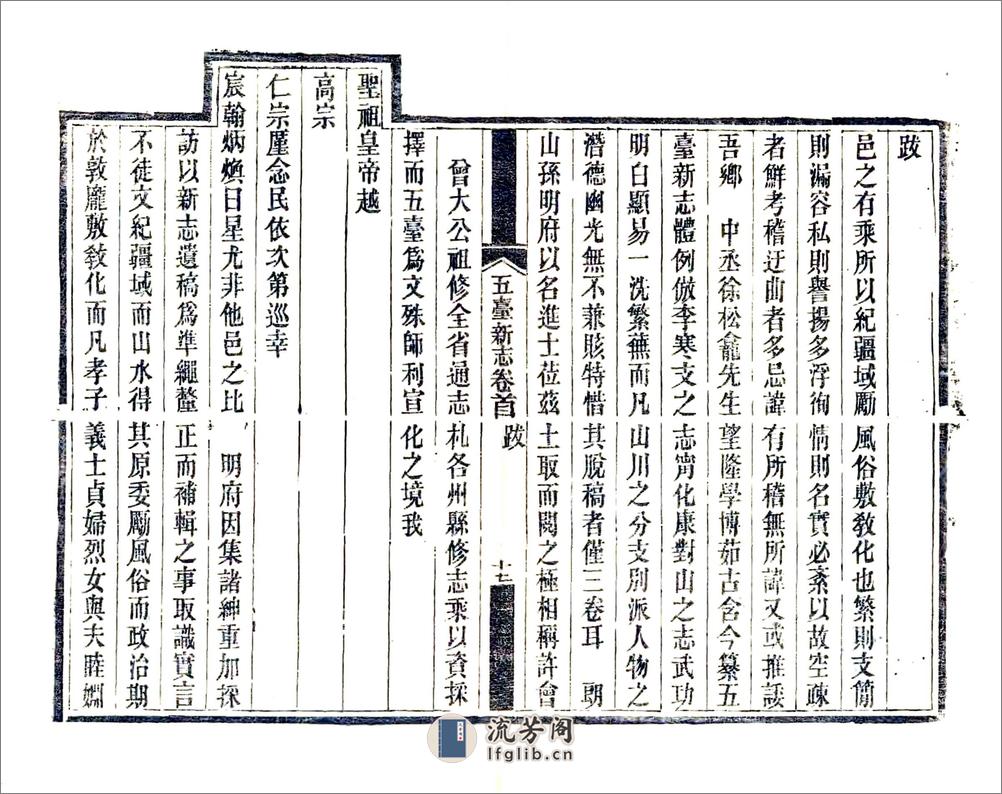 跋
邑之有乘所以紀疆域勵風俗敷敎化也繁則支簡
則漏容私則譽揚多浮徇情則名實必紊以故空疎
者鮮考稽迂曲者多忌諱有所稽無所諱又或推諉
吾鄉　中丞徐松龕先生望隆學博茹古含今纂五
臺新志體例倣李寒支之志甯化康對山之志武功
明白顯易一洗繁蕪而凡山川之分支別派人物之
潛德幽光無不兼賅特惜其脫稿者僅三卷耳　朗
山孫明府以名進士莅茲土取而閱之極相稱許會
五臺新志卷首　跋　十七
曾大公祖修全省通志札各州縣修志乘以資採
擇而五臺爲文殊師利宣化之境我
聖祖皇帝越
高宗
仁宗厪念民依次第巡幸
宸翰炳煥日星尤非他邑之比　明府因集諸紳重加採
訪以新志遺稿爲準繩釐正而補輯之事取識實言
不徒文紀疆域而山水得其原委勵風俗而政治期
於敦龐敷敎化而凡孝子義士貞婦烈女與夫睦婣
流芳阁
lfglib.cn